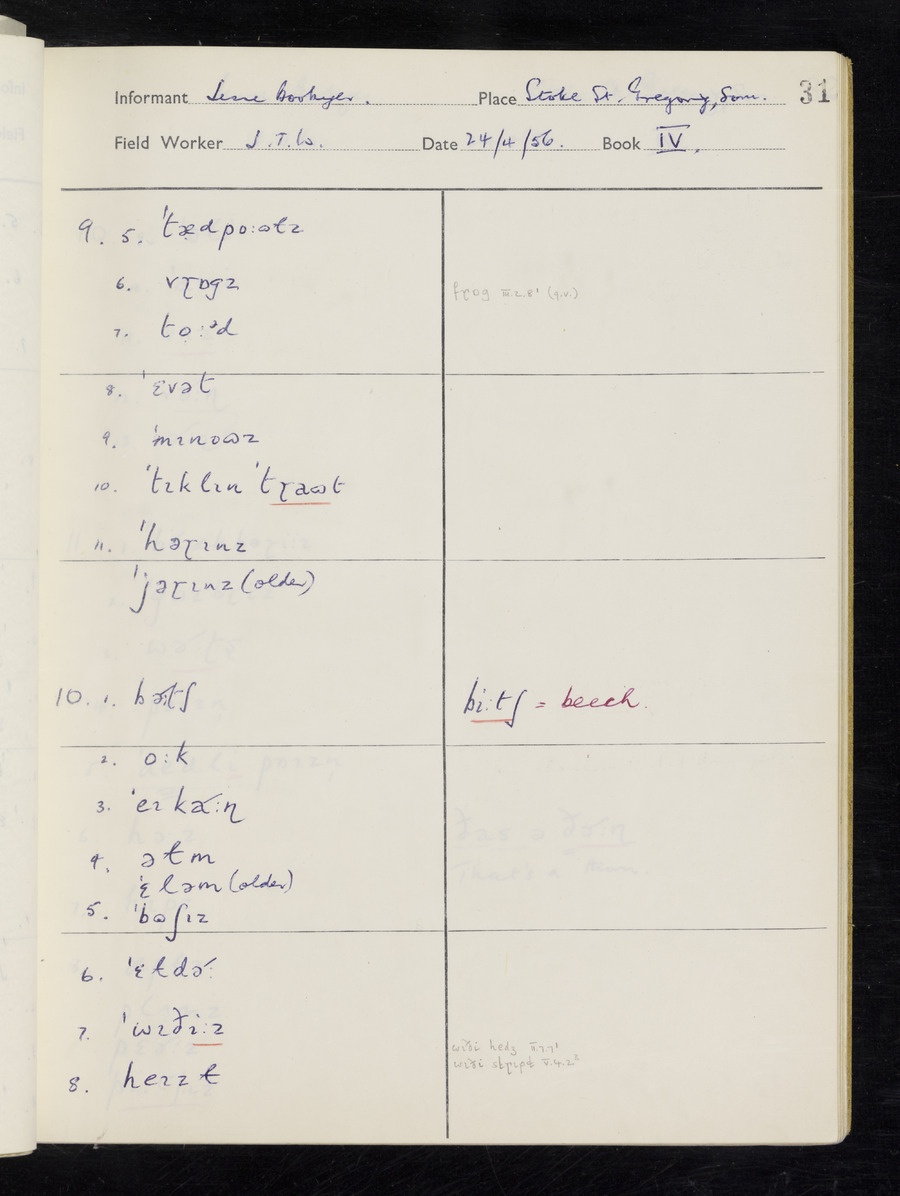 Informant Jesse Boobyer. Place Stoke St. Gregory, Som. 31
Field Worker J.T.W. Date 24/4/56. Book IV.
9. 5. ˈtædpoːɷɫz
6. vɽɒgz
frog III.2.8¹ (q.v.)
7. tọːᵊd
8. ˈɛvət
9. ˈmɪnoɷz
10. ˈtɪklɪn ˈtɽaɷt
11. ˈhəɽɪnz
ˈjəɽɪnz (older)
10. 1. bəitʃ
biːtʃ = beech.
2. oːk
3. ˈeɪkɚːɳ
4. əɫm
ˈɛ̣ləm (older)
5. ˈbɷʃɪz
6. ˈɛ̣ɫdɚː
7. ˈwɪðiːz
wɪði hedʒ
wɪði
8. heɪzɫ